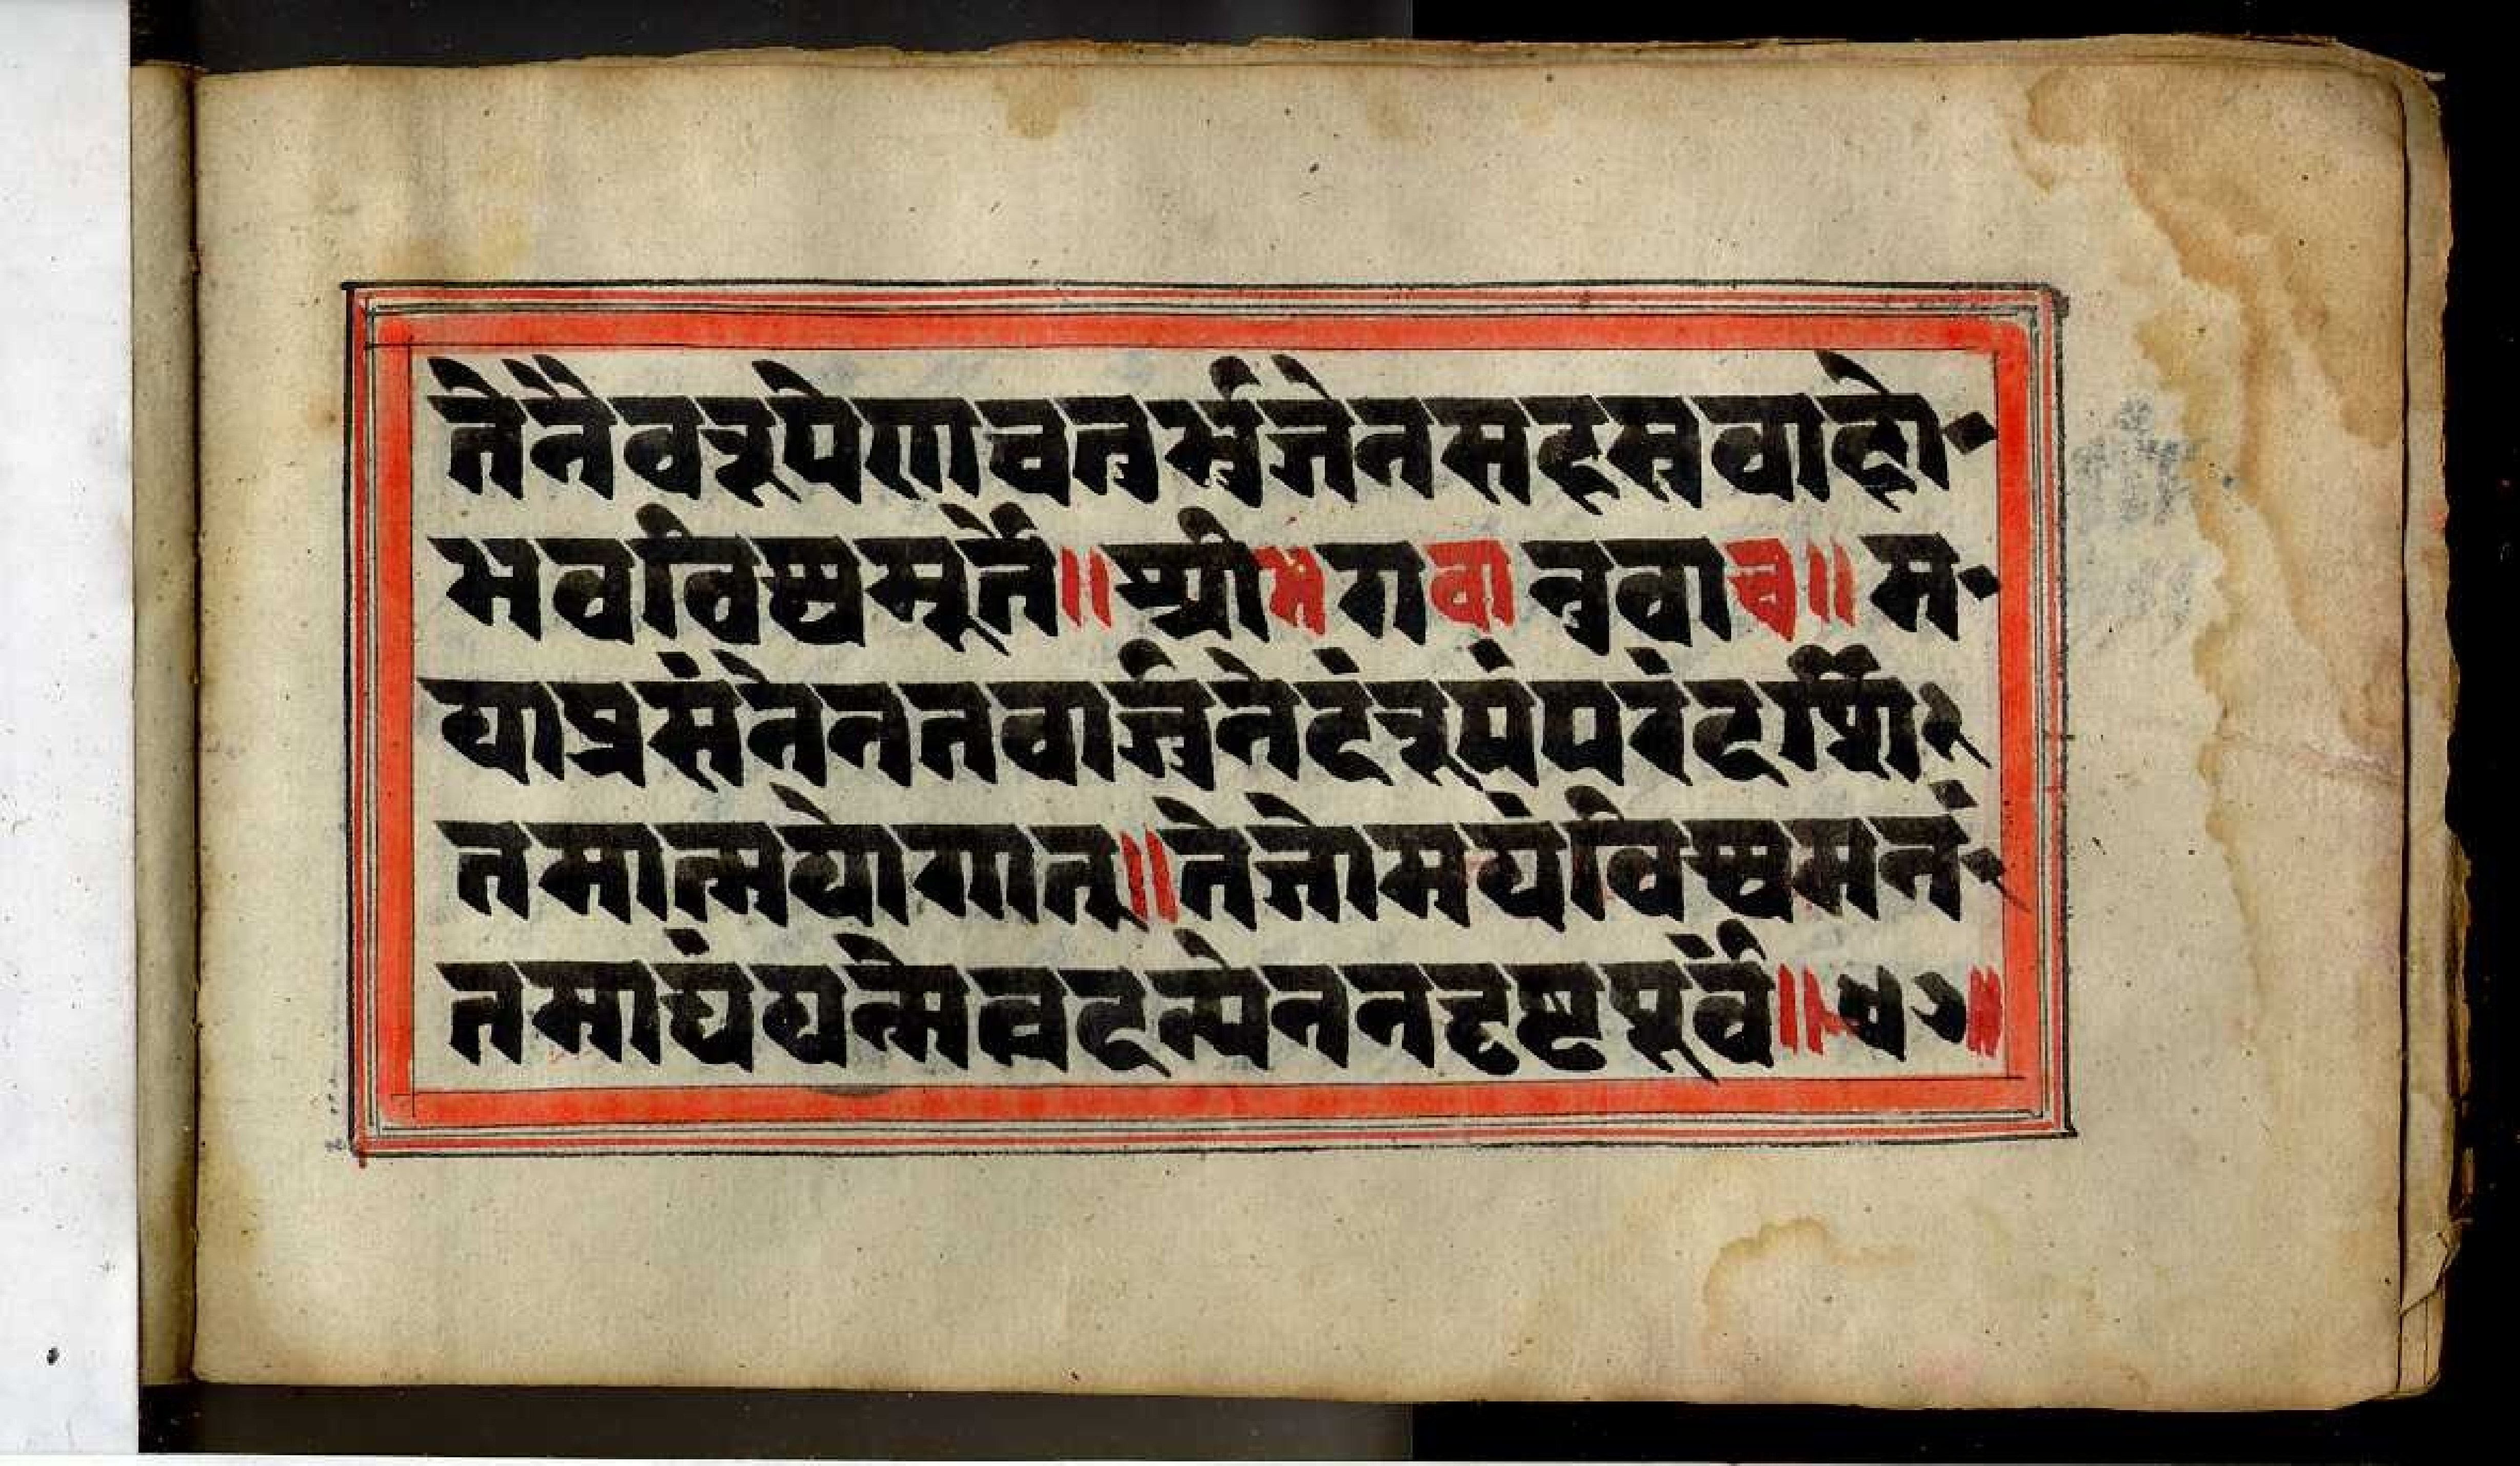 तेनैवरूपेणचतुर्भुजेनसहस्रवाहो
भवविश्वमूर्ते॥श्रीभगवानुवाच॥म
याप्रसंनेनतवार्जुनेदंरूपंपरंदर्शि
तमात्मयोगात्॥तेजोमयंविश्वमनं
तमाद्यंयन्मेत्वदन्येननदृष्टपूर्वं॥४७॥